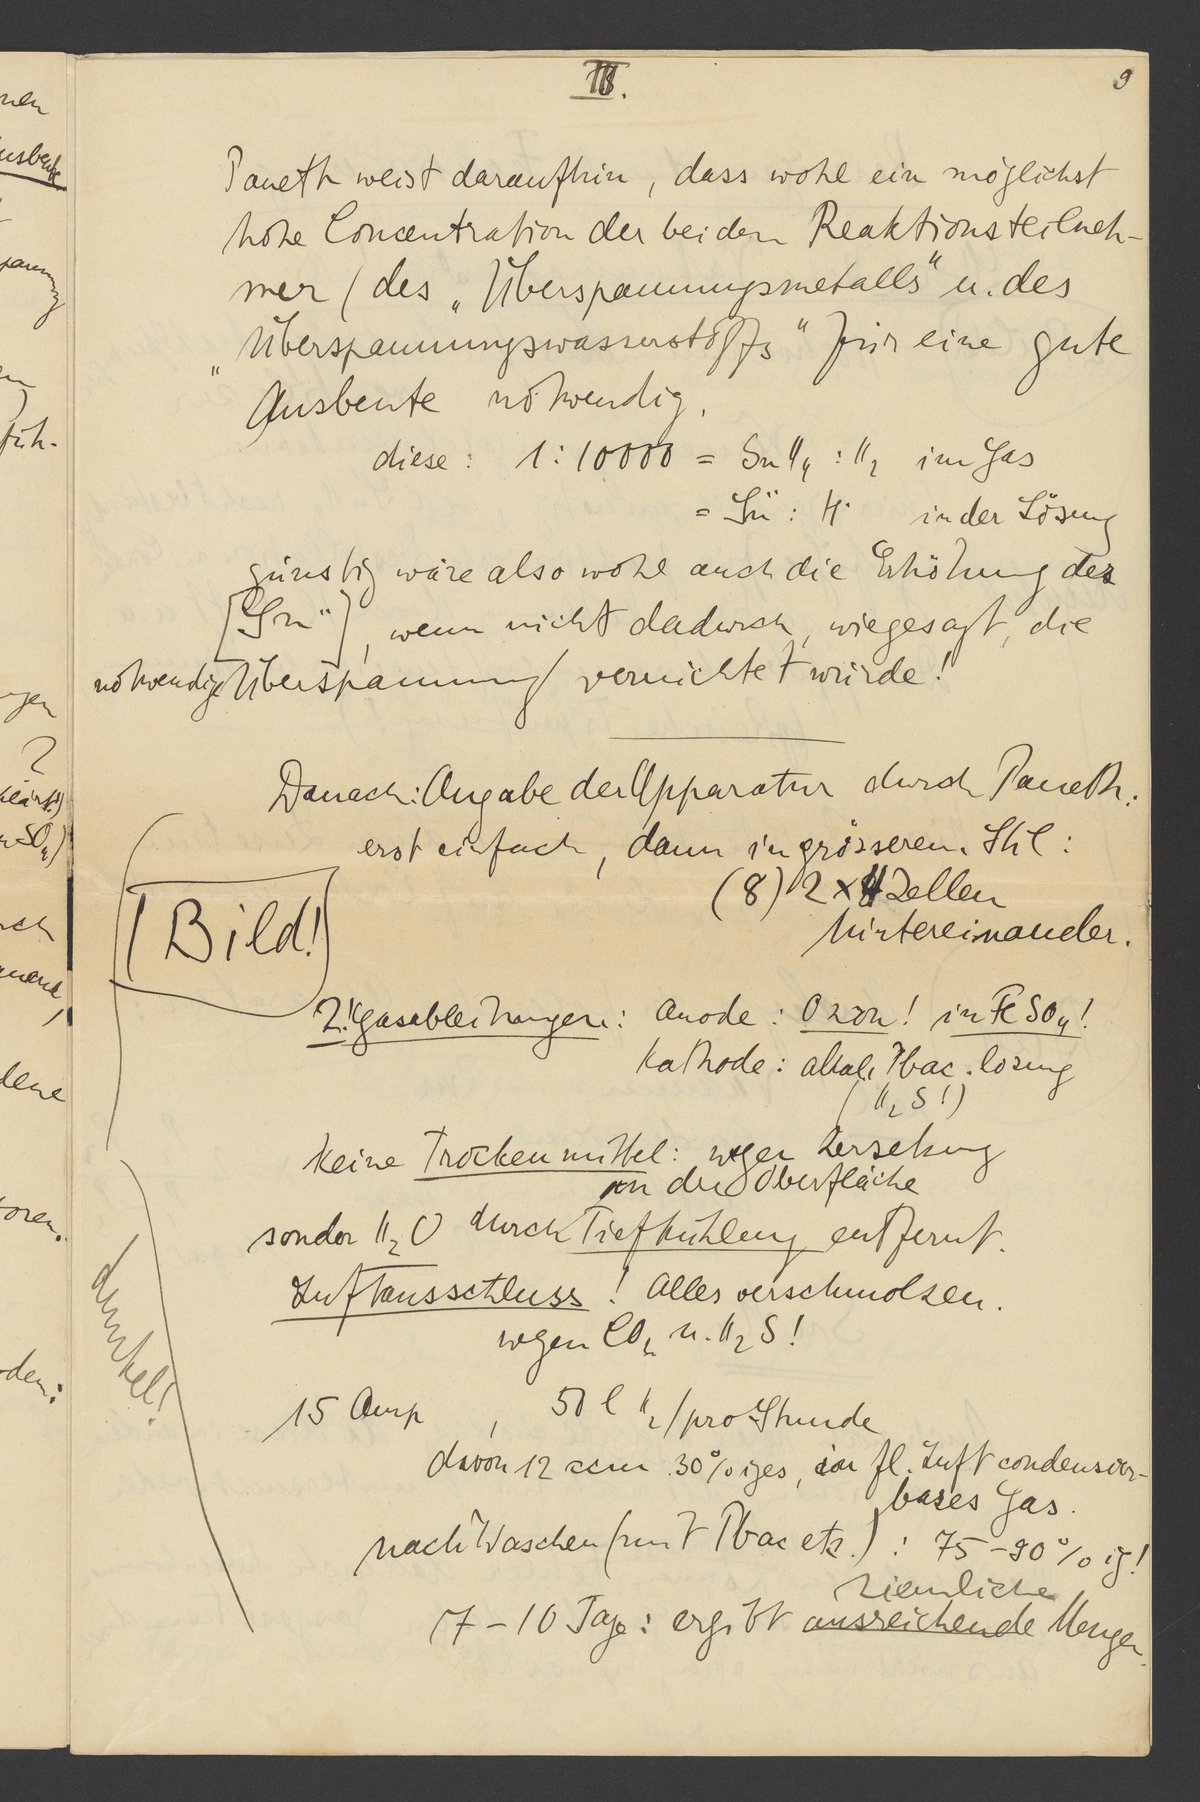 III.
9
Paneth weist daraufhin, dass wohl ein möglichst
hohe Concentration der beiden Reaktionsteilneh-
mer (des „Überspannungsmetalls" u. des
„Überspannungswasserstoffs" für eine gute
Ausbeute notwendig.
diese: 1:10000 = SnH4 : H2 im Gas
= Sn¨ : H˙ in der Lösung
günstig wäre also wohl auch die Erhöhung des
[Sn¨], wenn nicht dadurch, wiegesagt, die
notwendige Überspannung vernichtet würde!
Danach: Angabe der Apparatur durch Paneth:
erst einfach, dann in grösserem Stil:
(8) 2 x 4 Zellen
hintereinander.
Bild!
2! Gasableitungen: Anode: Ozon! in FeSO4!
Kathode: alkal. Pbac. lösung
(H2S!)
Keine Trockenmittel: wegen Zersetzung
an der Oberfläche
sonder H2O durch Tiefkühlung entfernt.
Luftausschluss! Alles verschmolzen.
wegen CO2 u. H2S!
dunkel!
15 Amp, 50 l H2/pro Stunde
davon 12 ccm 30%iges, in fl. Luft condensier-
bares Gas.
nach Waschen (mit Pbac etc.): 75-90%ig!
ziemliche
7-10 Tage: ergibt ausreichende Mengen.
nen
usbeute
pannung
en
füh-
ngen
?
klärt!)
nSO4)
rch
dene
toren.
oden: